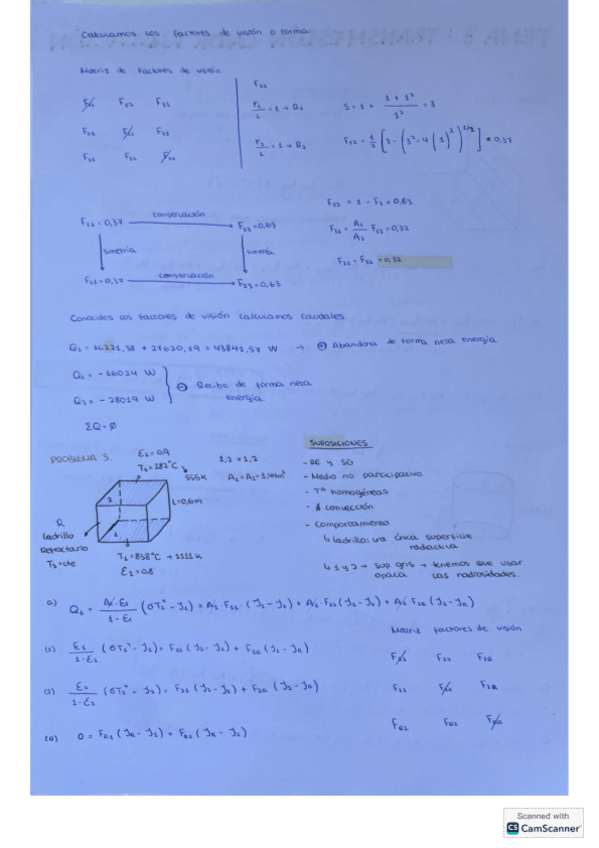 Calculamos los factores de visión o forma.
Matriz de factores de visión
F11 F12 F13
F21 F22 F23
F31 F32 F33
F12
r1/L = 1 → R1
r2/L = 1 → R2
S = 1 + (1 + 1²)/1² = 3
F12 = 1/2 [3 - (3² - 4 (1)²)^1/2] = 0,37
F12 = 0,37 conservación F13 = 0,63
simetría simetría
F21 = 0,37 conservación F23 = 0,63
F13 = 1 - F12 = 0,63
F31 = A1/A3 F13 = 0,32
F31 = F32 = 0,32
Conocidos los factores de visión calculamos caudales.
Q1 = 16221,38 + 27620,19 = 43841,57 W → Abandona de forma neta energía
Q2 = - 16024 W
Q3 = - 28019 W
Recibe de forma neta energía.
ΣQ = ∅
PROBLEMA 3.
ε2 = 0.9
T2 = 282°C
555K
1,2 x 1,2
A1 = A2 = 1,44m²
L = 0,6m
2
1
R
Ladrillo
Refractario
T3 = cte
T1 = 838°C → 1111K
ε1 = 0.8
SUPOSICIONES
- RE y SG
- Medio no participativo
- Tª homogéneas
- ∄ convección
- Comportamiento
↳ ladrillo: una única superficie radiactiva
↳ 1 y 2 → sup gris → tenemos que usar
opaca las radiosidades.
a) Q1 = A1·ε1/(1-ε1) (σT1⁴ - J1) = A1 F11 (J1 - J1) + A1 F12 (J1 - J2) + A1 F1R (J1 - JR)
Matriz factores de visión
(1) ε1/(1-ε1) (σT1⁴ - J1) = F12 (J1 - J2) + F1R (J1 - JR)
F11 F12 F1R
(2) ε2/(1-ε2) (σT2⁴ - J2) = F21 (J2 - J1) + F2R (J2 - JR)
F21 F22 F2R
(R) 0 = FR1 (JR - J1) + FR2 (JR - J2)
FR1 FR2 FRR
Scanned with
CS CamScanner